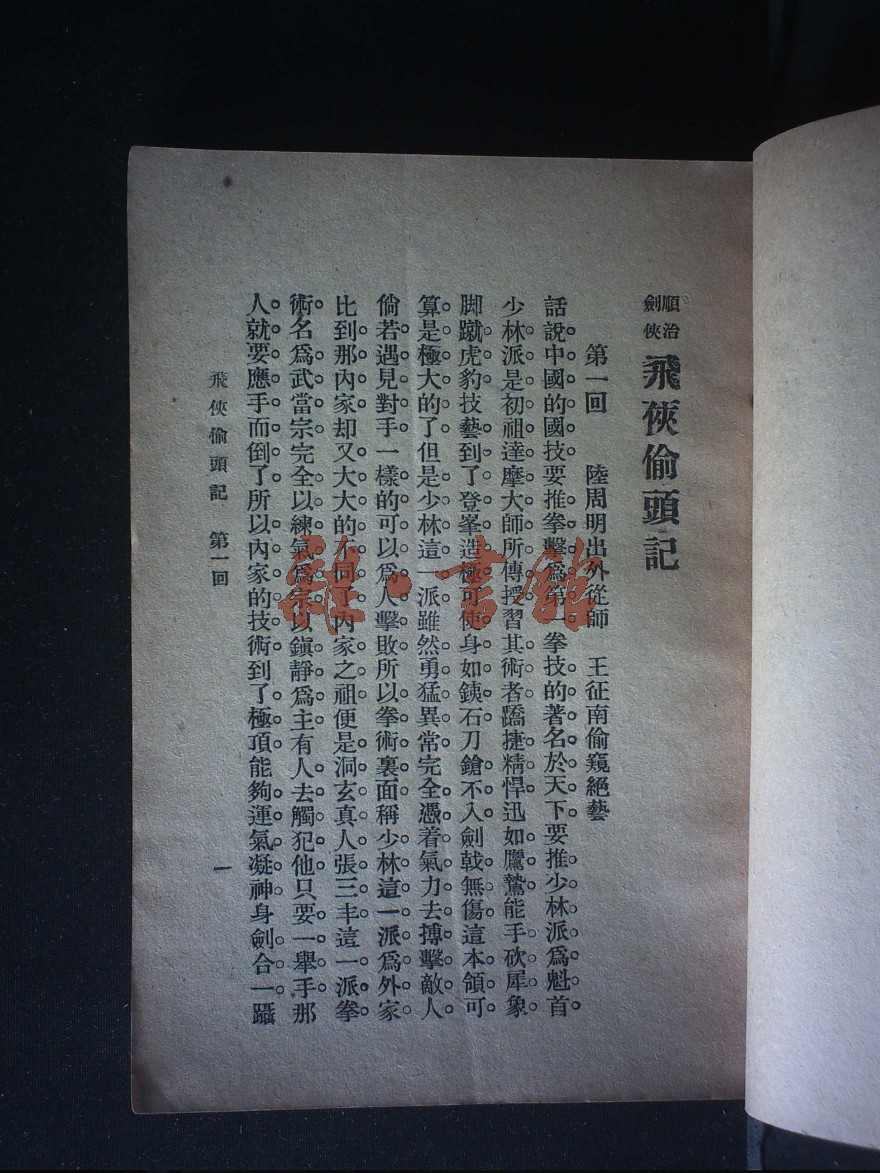 順治
劍俠
飛俠偷頭記
第一回 陸周明出外從師 王征南偷窺絕藝
話說中國的國技要推拳擊爲第一拳技的著名於天下要推少林派爲魁首。
少林派是初祖達摩大師所傳授習其術者蹻捷精悍迅如鷹鷙能手砍犀象。
脚蹴虎豹技藝到了登峯造極可使身如鉄石刀鎗不入劍戟無傷這本領可
算是極大的了但是少林這一派雖然勇猛異常完全憑着氣力去搏擊敵人。
倘若遇見對手一樣的可以爲人擊敗所以拳術裏面稱少林這一派爲外家
比到那內家却又大大的不同了內家之祖便是洞玄真人張三丰這一派拳
術名爲武當宗完全以練氣爲宗以鎭靜爲主有人去觸犯他只要一舉手那
人就要應手而倒了所以內家的技術到了極頂能夠運氣凝神身劍合一躡
飛俠偷頭記 第一回
一
雜·書館